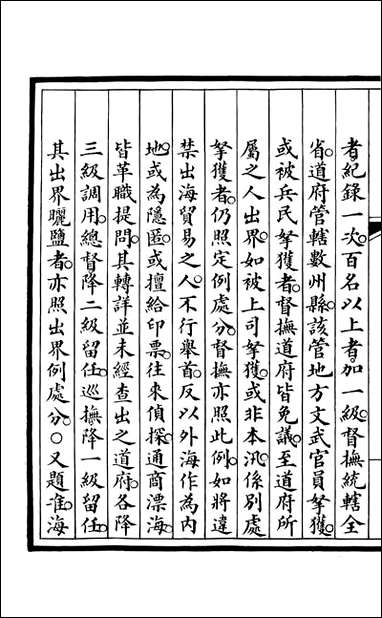 者紀錄一次百名以上者加一級督撫統轄全
省道府管轄數州縣該管地方文武官員拏獲
或被兵民拏獲者督撫道府皆免議至道府所
屬之人出界如被上司拏獲或非本汛係別處
拏獲者仍照定例處分督撫亦照此例如將違
禁出海貿易之人不行舉首反以外海作為內
地或為隱匿或擅給印票往來偵探通商漂海
皆革職提問其轉詳並未經查出之道府各降
三級調用總督降二級留任巡撫降一級留任
其出界曬鹽者亦照出界例處分○又題准海